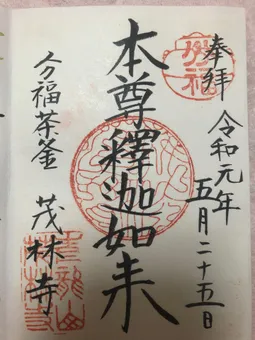 奉拝
令和元年
五月二十五日
本尊釋迦如来
分福茶釜
茂林寺